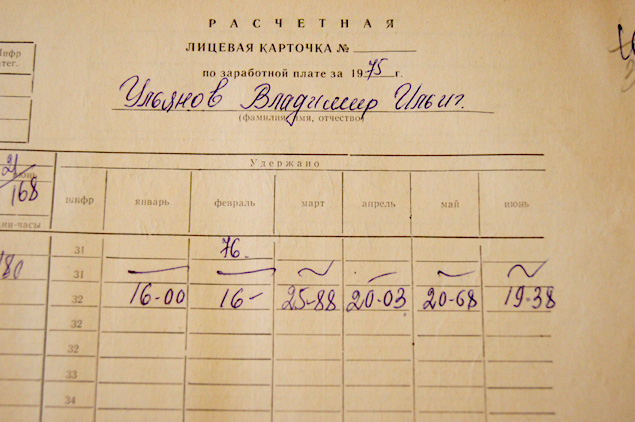 РАСЧЕТНАЯ
ЛИЦЕВАЯ КАРТОЧКА №
по заработной плате за 1975 г.
Ульянов Владимир Ильич.
(фамилия, имя, отчество)
Шифр
Удержано
168 шифр январь февраль март апрель май июнь
31 76-
180 31
32 16-00 16- 25-88 20-03 20-68 19-38
32
32
33
34